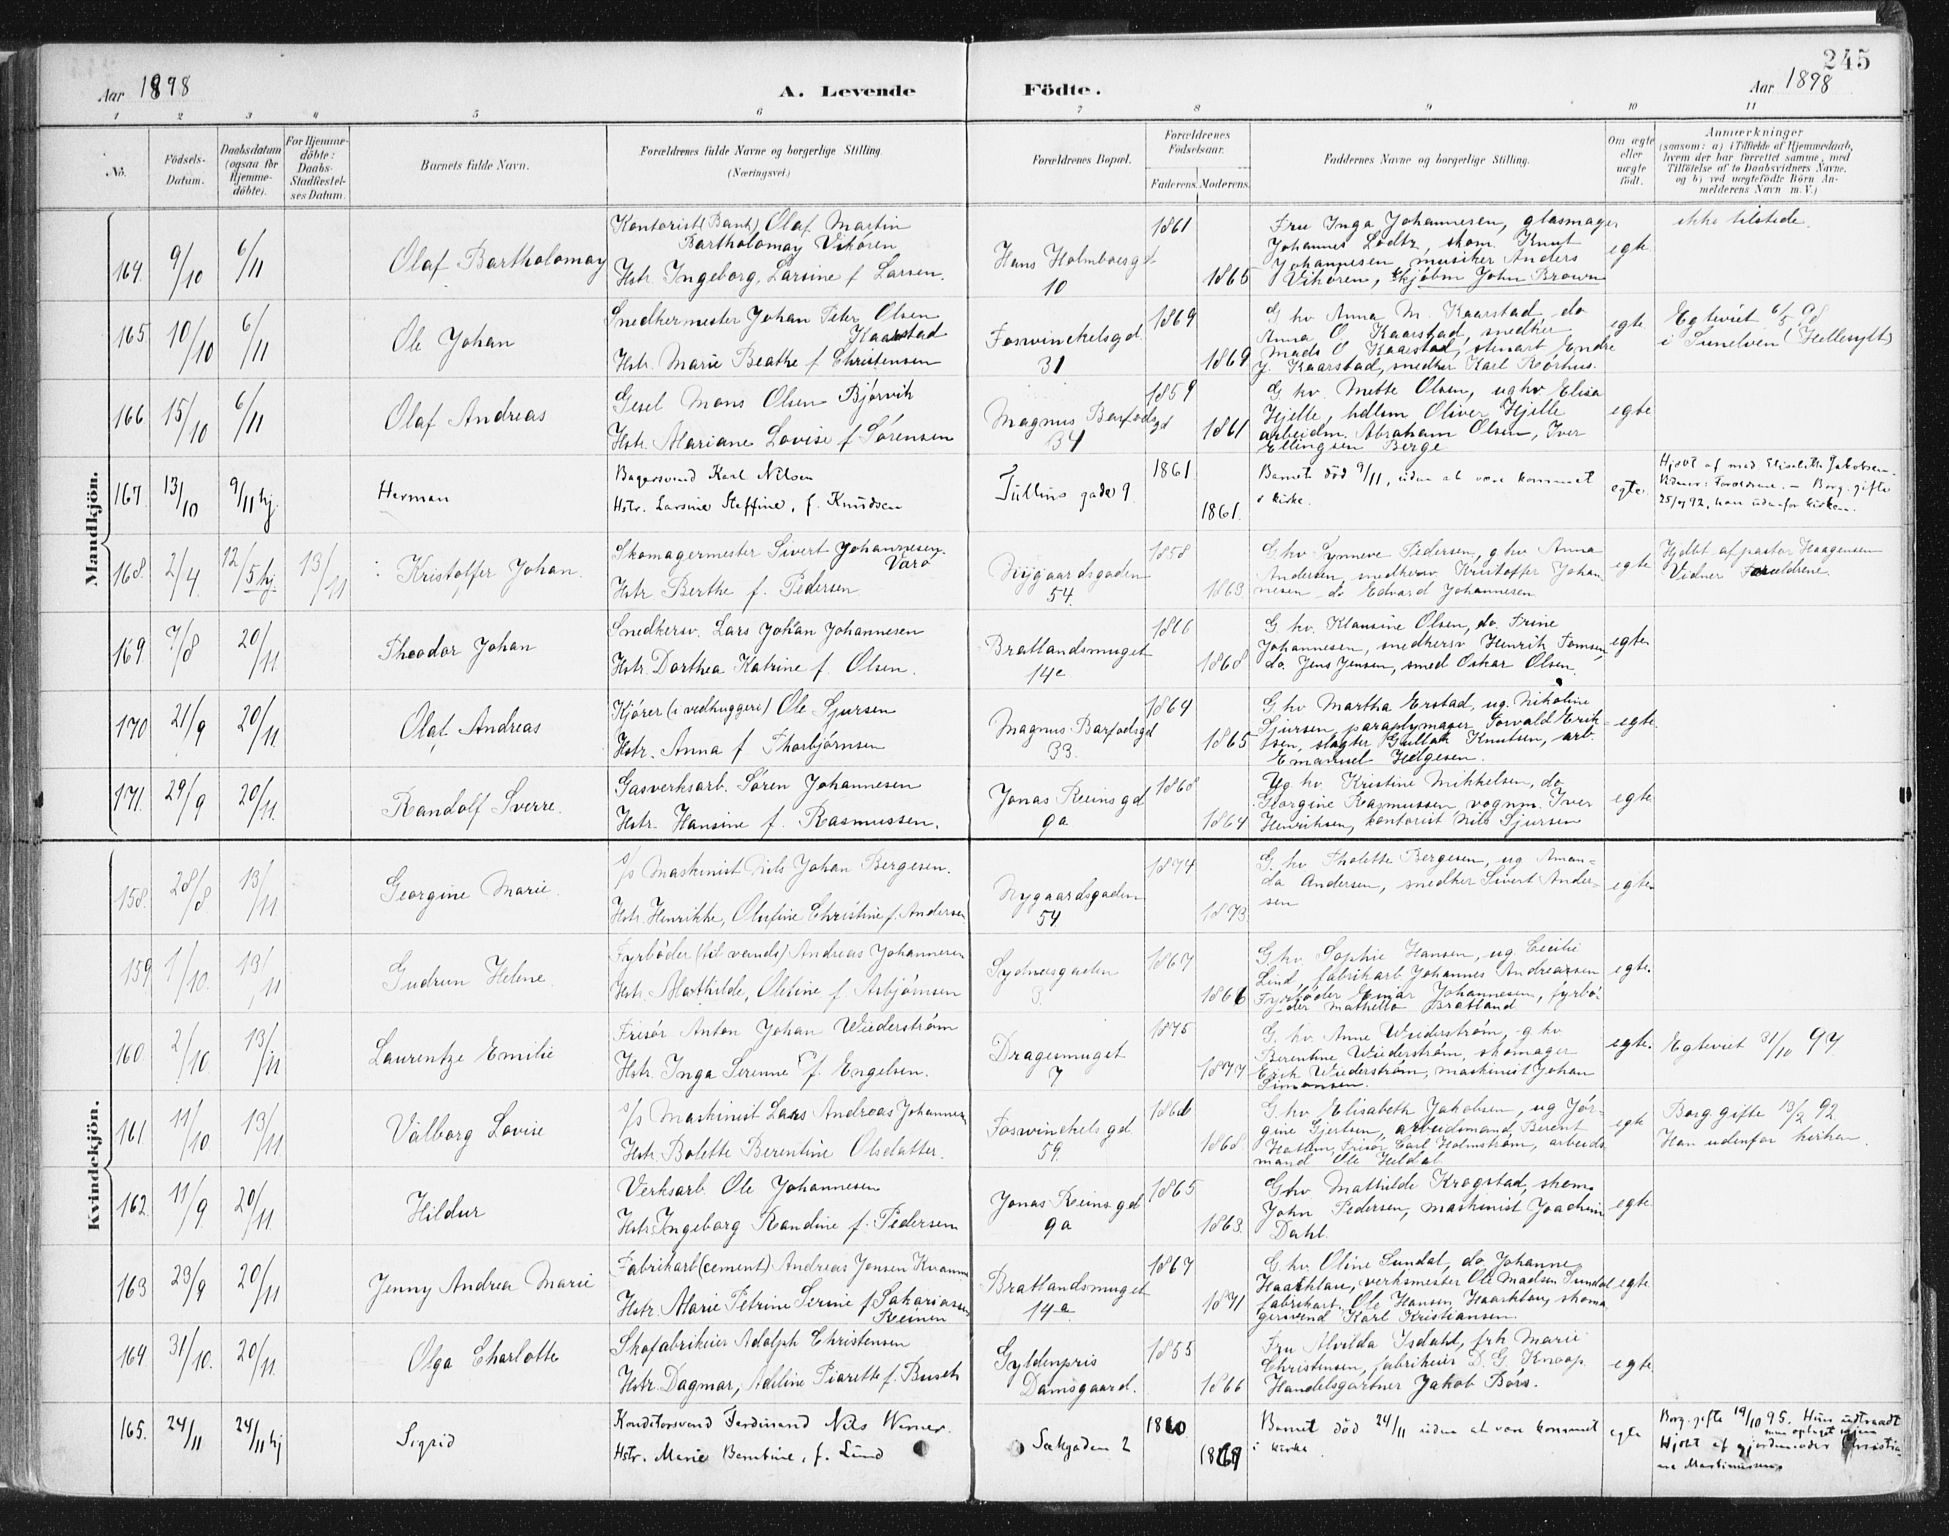 245
Aar 1898
A. Levende
Födte.
Aar 1898
1 2 3 4 5 6 7 8 9 10 11
No.
Födsels-
Datum.
Daabsdatum
(ogsaa for
Hjemme-
döbte).
For Hjemme-
döbte:
Daabs-
Stadfæstel-
ses Datum.
Barnets fulde Navn.
Forældrenes fulde Navne og borgerlige Stilling
(Næringsvei.)
Forældrenes Bopæl.
Forældrenes
Födselsaar.
Faderens. Moderens.
Faddernes Navne og borgerlige Stilling.
Om ægte
eller
uægte
födt.
Anmærkninger
(saasom: a) i Tilfælde af Hjemmedaab,
hvem der har forrettet samme, med
Tilföielse af to Daabsvidners Navne,
og b) ved uægtefödte Börn An-
melderens Navn m. V.)
Mandkjön.
164. 9/10 6/11
Olaf Bartholomay
Kontorist (Bank) Olaf Martin
Bartholomay Vikören
Hstr. Ingeborg, Larsine f Larsen.
Hans Holmboesgt
10
1861
1865
Fru Inga Johannesen, glasmager
Johannes Lodtz, skom. Knut
Johannesen, musiker Anders
Vikören, skjöbm John Brown
egte
ikke tilstede.
165. 10/10 6/11
Ole Johan
Snedkermester Johan Peter Olsen
Kaarstad
Hstr. Marie Beathe f Christensen
Foswinckelsgd
31
1869
1869
G hv Anna M. Kaarstad, do
Anna O Kaarstad, snedker
Mads O Kaarstad, stenart Endre
J. Kaarstad, snedker Karl Rörhus.
egte
Egteviet 6/5 98
i Sunelven (Hellesylt)
166 15/10 6/11
Olaf Andreas
Gesel Mons Olsen Bjørvik
Hstr. Mariane Lovise f Sørensen
Magnus Barfodsgd
34
1859
1861
G hv Mette Olsen, ug hv Elisa
Hjelle, hdlsm Oliver Hjelle
arbeidm. Abraham Olsen, Iver
Ellingsen Berge
egte
167 13/10 9/11 hj.
Herman
Bagersvend Karl Nilsen
Hstr. Larsine Steffine, f. Knudsen
Tullins gade 9
1861
1861.
Barnet död 9/11, uden at være kommet
i kirke.
egte.
Hjdøbt af mad Elisabeth Jakobsen.
Vidner: Forældrene. — Borg. gifte
25/9 92, han udenfor kirken.
168. 2/4 12/5 hj. 13/11
Kristoffer Johan.
Skomagermester Sivert Johannesen
Varö
Hstr Berthe f. Pedersen
Nygaardsgaden
54.
1858
1863
G hv Synneve Pedersen, g hv Anna
Andersen, snedkersv Kristoffer Johan
nesen do Edvard Johannesen
egte
Hjdbt af pastor Haagensen
Vidner Forældrene
169 7/8 20/11
Theodor Johan
Snedkersv. Lars Johan Johannesen
Hstr. Dorthea Katrine f. Olsen.
Bratlandsmuget
14c
1866
1868
G hv. Klausine Olsen, do Trine
Johannesen, snedkersv Henrik Tomsen,
do. Jens Jensen, smed Oskar Olsen.
egte
170 21/9 20/11
Olaf Andreas
Kjörer (i vedhuggeri) Ole Sjursen
Hstr. Anna f Thorbjörnsen
Magnus Barfodsgd
33.
1864
1865
G hv Martha Erstad, ug. Nikoline
Sjursen, paraplymager Torvald Erik-
sen, slagter Gullak Knutsen, arb.
Emanuel Helgesen.
egte
171. 29/9 20/11
Randolf Sverre.
Gasverksarb. Søren Johannesen
Hstr. Hansine f. Rasmussen.
Jonas Reins gd
9a
1868
1864
Ug hv Kristine Mikkelsen, do
Georgine Rasmussen, vognm. Iver
Henriksen, kontorist Nils Sjursen
egte
Kvindekjön.
158. 28/8 13/11
Georgine Marie.
s/s Maskinist Nils Johan Bergesen.
Hstr. Henrikke, Olufine Christine f. Andersen
Nygaardsgaden
54
1874
1873.
G. hv Tholette Bergesen, ug Aman-
da Andersen, snedker Sivert Ander-
sen
egte.
159 1/10. 13/11
Gudrun Helene.
Fyrböder (til vands) Andreas Johannesen
Hstr. Mathilde, Olesine f Asbjörnsen
Sydnesgaden
3.
1867
1866
G. hv. Sophie Hansen, ug Cecilie
Lind, fabrikarb Johannes Andreassen
Fyrböder Einar Johannesen, fyrbö-
der Mathello Bratland
egte.
160 2/10 13/11
Laurentze Emilie
Frisör Anton Johan Wiederström
Hstr. Inga Serenne f. Engelsen.
Dragemuget
7
1875
1877
G. hv. Anne Wiederström, g hv
Berentine Wiederström, skomager
Erik Wiederström, maskinist Johan
Simonsen.
egte.
Egteviet 31/10 97
161 11/10 13/11
Valborg Lovise
s/s Maskinist Lars Andreas Johannesen
Hstr. Bolette Berentine Olsdatter.
Foswinckels gd
59.
1866
1868.
G hv Elisabeth Jakobsen, ug Jör-
gine Gjertsen, arbeidsmand Berent
Hatlem, Frisör Carl Holmström, arbeids
mand Ole Hildal
egte
Borg. gifte 13/2 92
Han udenfor kirken.
162 11/9 20/11
Hildur
Verksarb. Ole Johannesen
Hstr. Ingeborg Randine f. Pedersen
Jonas Reins gd
9a
1865
1863.
G hv Mathilde Krogstad, skom.
John Pedersen, maskinist Joachim
Dahl.
egte
163 23/9 20/11
Jenny Andrea Marie
Fabrikarb (cement) Andreas Jensen Kvamme
Hstr. Marie Petrine Serine f Sakariassen
Reinen
Bratlandsmuget
14a
1867
1871
G. hv Oline Sundal, do Johanne
Haarklau, verksmester Ole Madsen Sundal
fabrikarb. Ole Hansen Haarklau, skoma
gersvend Karl Kristiansen.
egte
164 31/10. 20/11.
Olga Charlotte
Skofabrikeier Adolph Christensen
Hstr. Dagmar, Adeline Pierette f. Busch
Gyldenpris
Damsgaard.
1855
1866
Fru Alvilda Isdahl, frk Marie
Christensen, fabrikeier D. G. Knoop
Handelsgartner Jakob Börs.
egte
165. 24/11 24/11 hj
Sigrid
Konditorsvend Ferdinand Nils Werner
Hstr. Marie Bernbine, f. Lund
Sækgaden 2
1860
1869
Barnet död 24/11 uden at være kommet
i kirke
egte
Borg. gifte 19/10 95. Hun udtraadt
men optaget igjen
Hjdøbt af gjordemoder Christia-
ne Martinussen